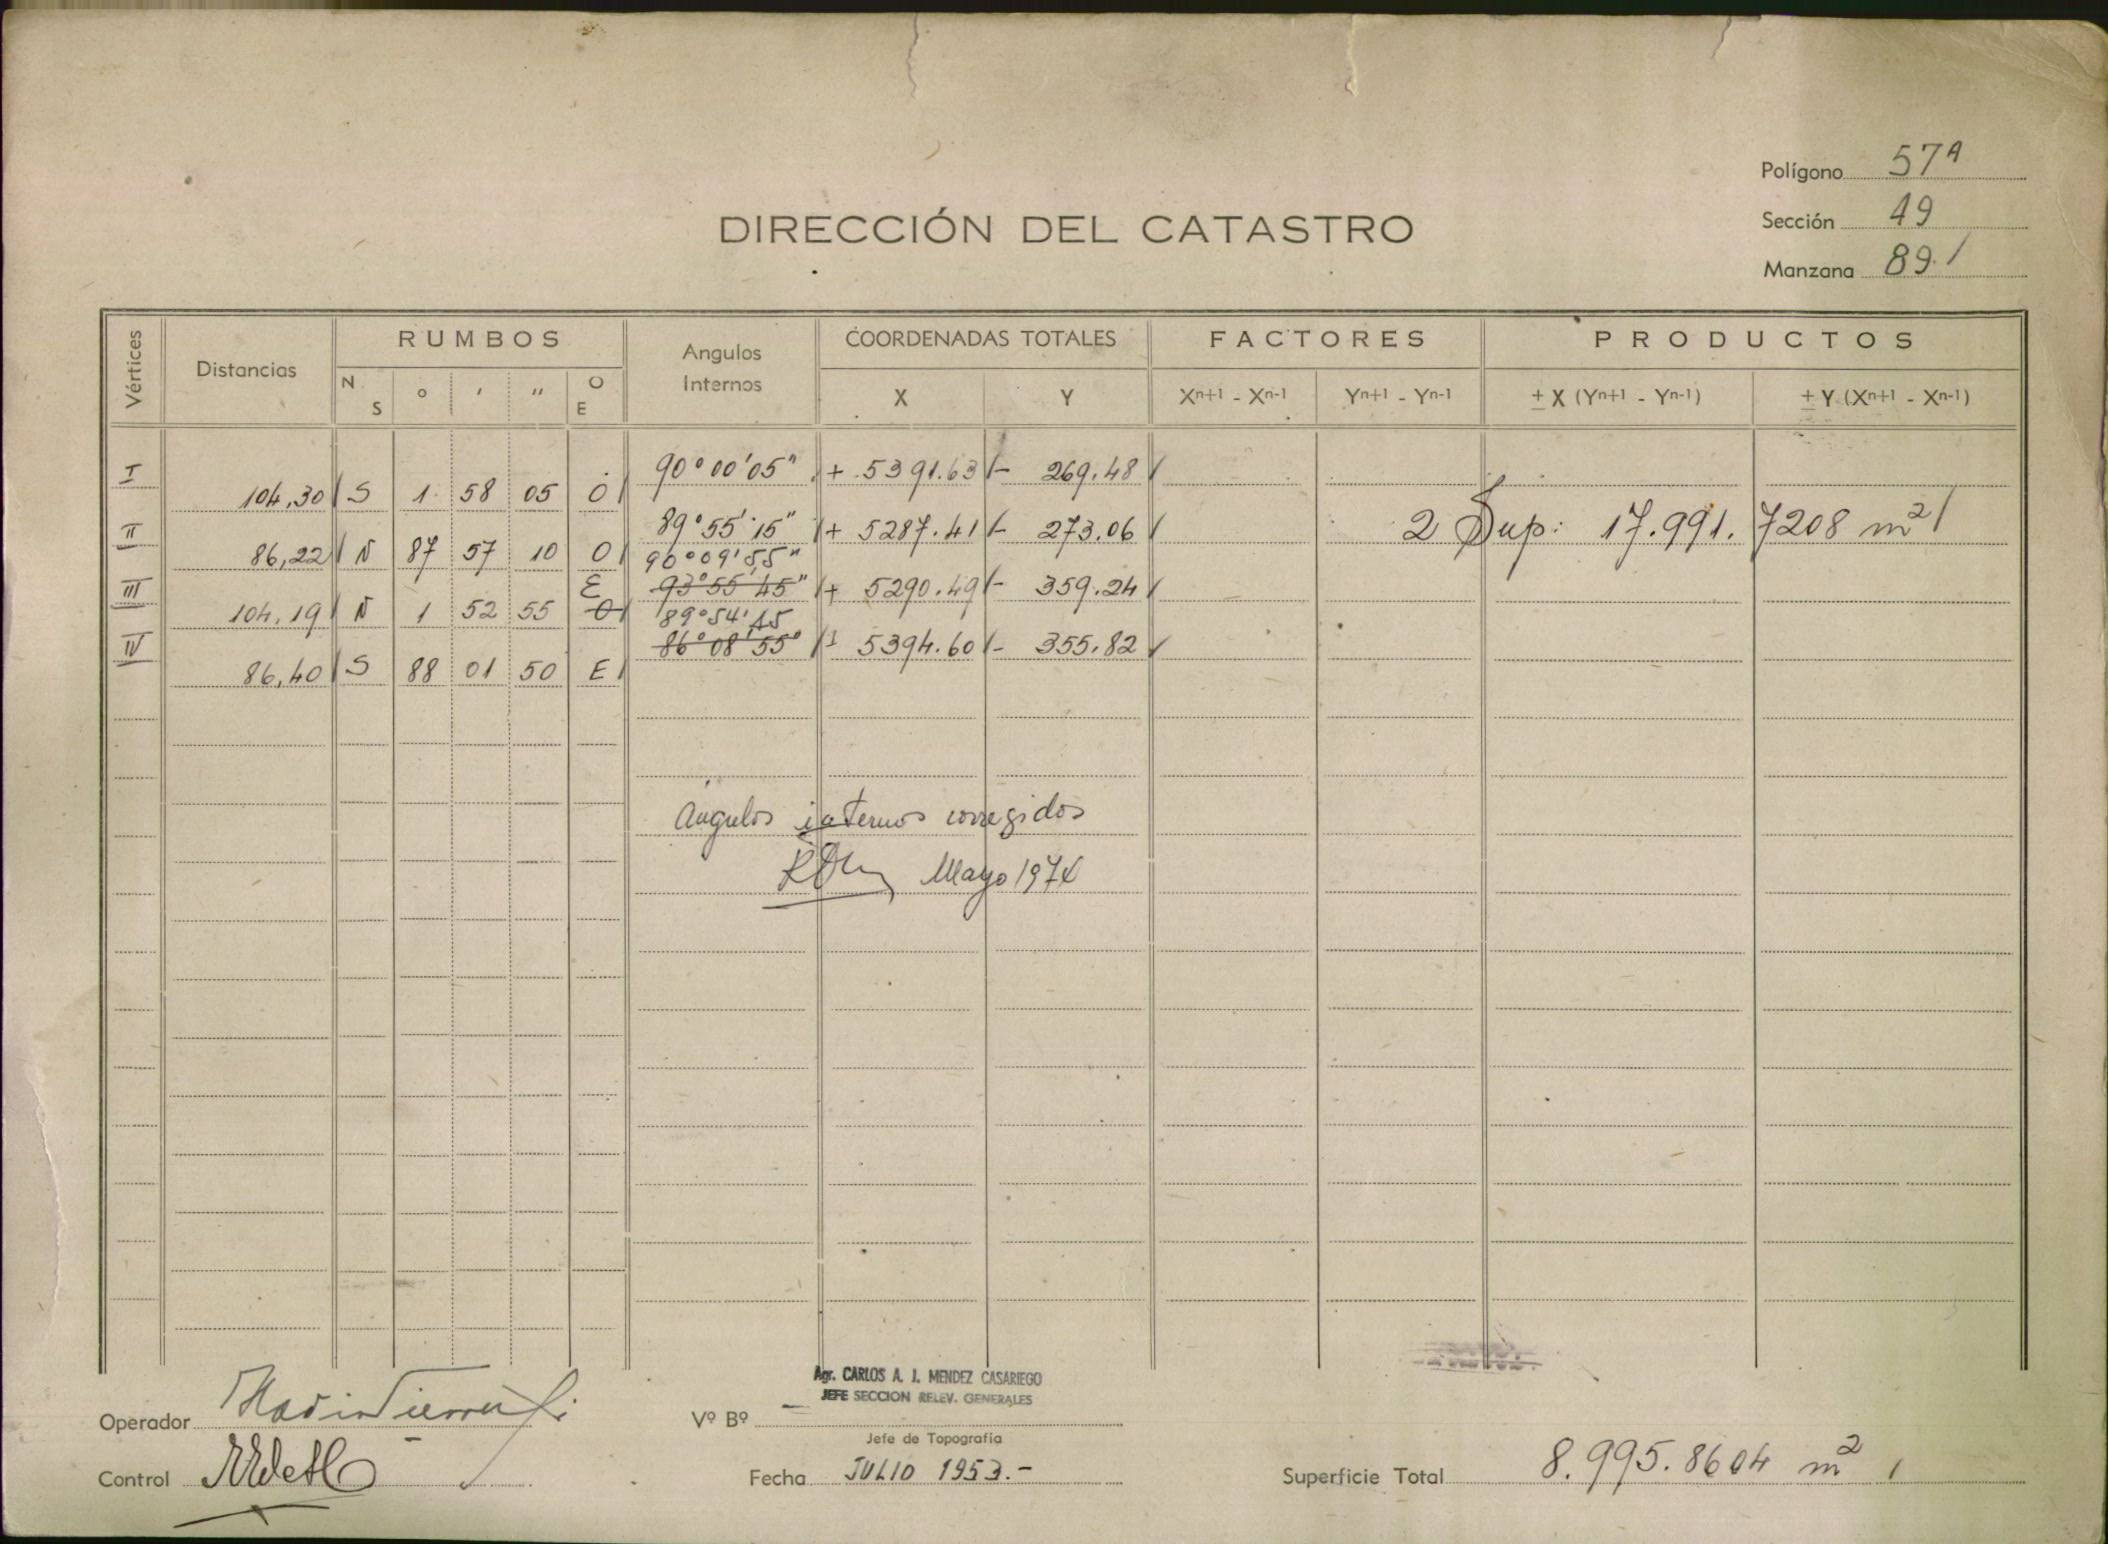 Polígono 57A
Sección 49
Manzana 89./
DIRECCIÓN DEL CATASTRO
Vértices
Distancias
RUMBOS
N S ° ' " O E
Angulos Internos
COORDENADAS TOTALES
X Y
FACTORES
Xn+1 - Xn-1 Yn+1 - Yn-1
PRODUCTOS
± X (Yn+1 - Yn-1) ± Y (Xn+1 - Xn-1)
I 90°00'05" + 5391.63 - 269.48
104,30 S 1 58 05 O
II 89°55'15" + 5287.41 - 273.06
2 Sup: 17.991.7208 m2
86,22 N 87 57 10 O 90°09'55"
III E 93°55'45" + 5290.49 - 359.24
104,19 N 1 52 55 O 89°54'45
IV 86°08'55" + 5394.60 - 355.82
86,40 S 88 01 50 E
Angulos internos corregidos
Mayo 1974
Agr. CARLOS A. J. MENDEZ CASARIEGO
JEFE SECCION RELEV. GENERALES
Operador
Vº Bº
Jefe de Topografía
Control
Fecha JULIO 1953.-
Superficie Total 8.995.8604 m2